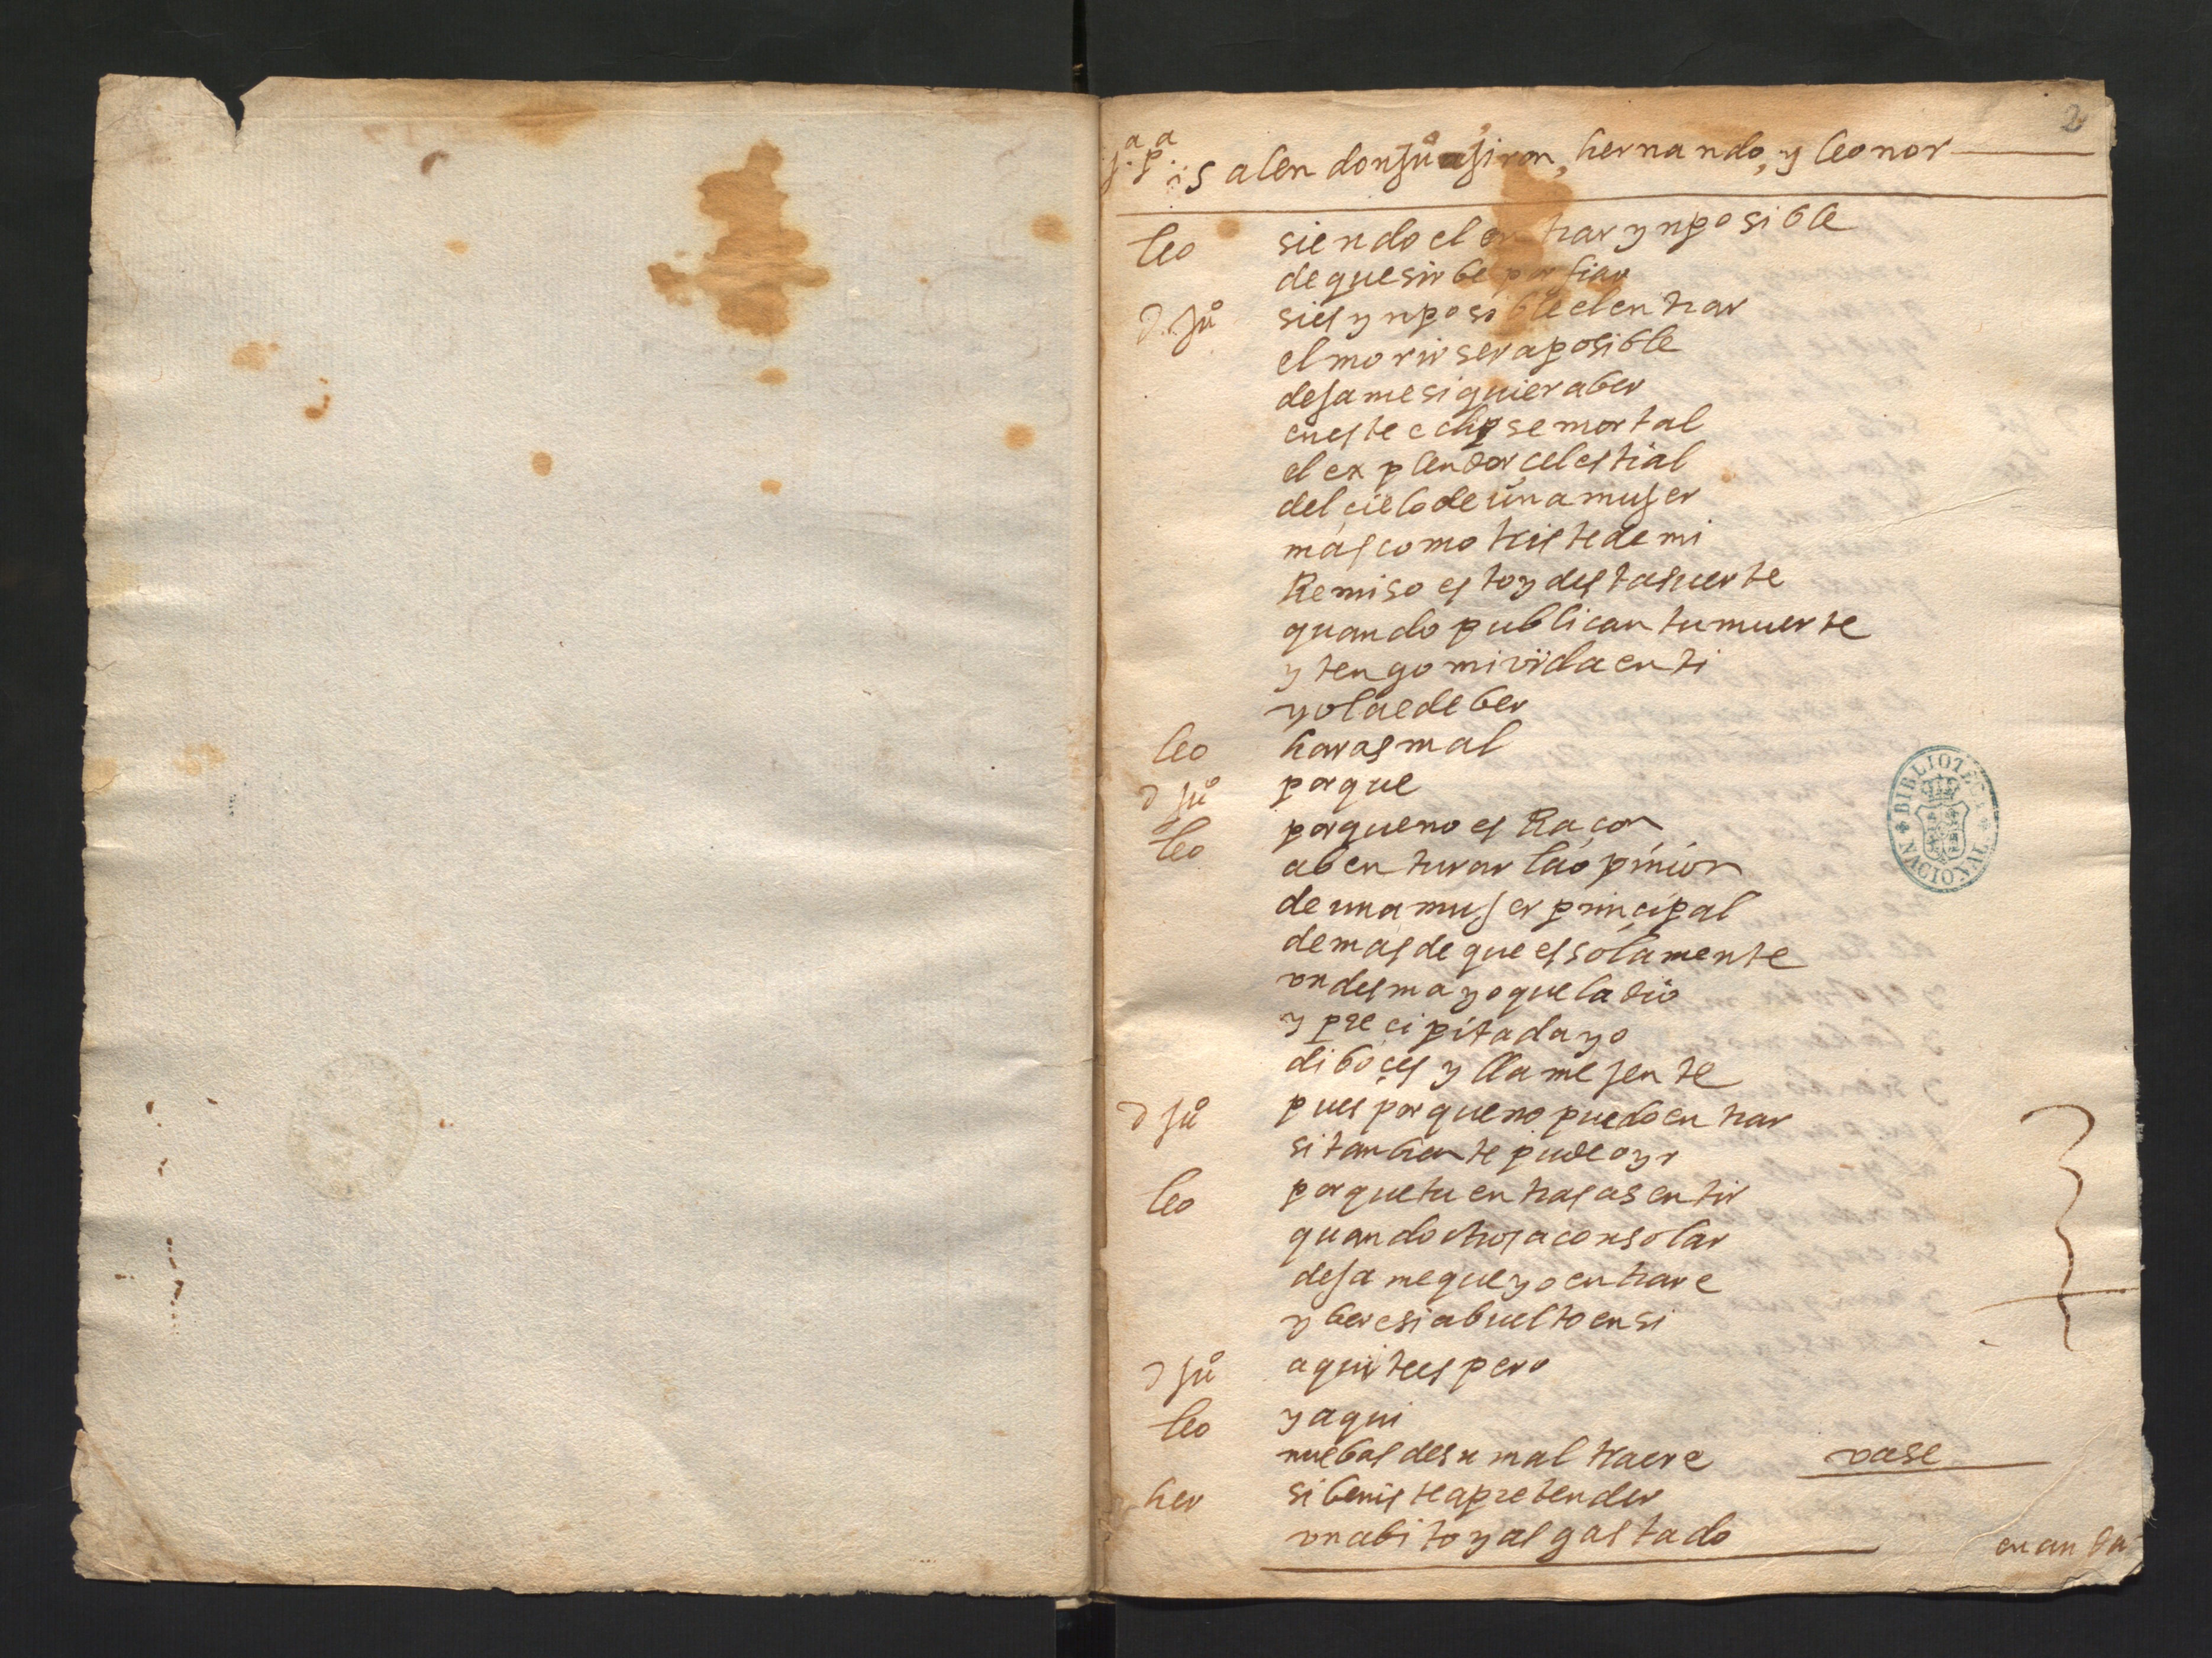 2
j.ª p.ª salen don juº jiron, hernando, y leonor
leo siendo el entrar ynposible
de que sirbe porfiar
d. juº si es ynposible el entrar
el morir sera posible
dejame siquiera ber
en este eclipse mortal
el explendor çelestial
del çielo de una mujer
mas como triste de mi
Remiso estoy desta suerte
quando publican tu muerte
y tengo mi vida en ti
yo la e de ber
leo haras mal
d juº porque
leo porque no es Raçon
abenturar la opinion
de una mujer prinçipal
demas de que es solamente
vn desmayo que la dio
y preçipitada yo
di boçes y llame jente
d juº pues porque no puedo entrar
si tanbien te pude oyr
leo porque tu entras a sentir
quando otros a consolar
dejame que yo entrare
y bere si a buelto en si
d juº aqui te espero
leo y aqui
nuebas de su mal traere vase
her si beniste a pretender
vn abito y as gastado
en an da
BIBLIOTECA NACIONAL